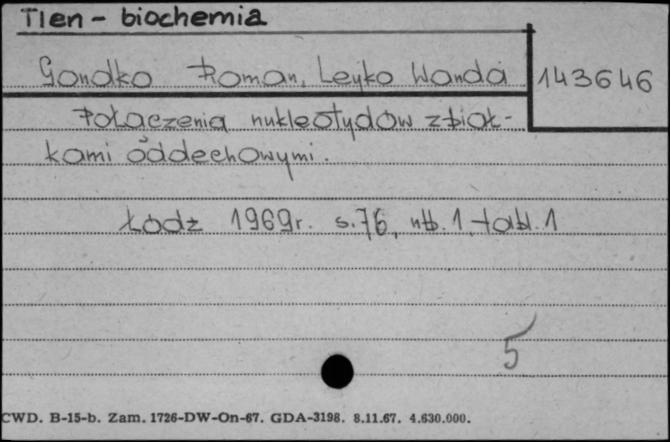 Tlen - biochemia
Gondko Roman, Leyko Wanda 143646
Połączenia nukleotydów z biał-
kami oddechowymi.
Łódź 1969r. s.76, nlb.1, tabl.1
5
CWD. B-15-b. Zam. 1726-DW-On-67. GDA-3198. 8.11.67. 4.630.000.